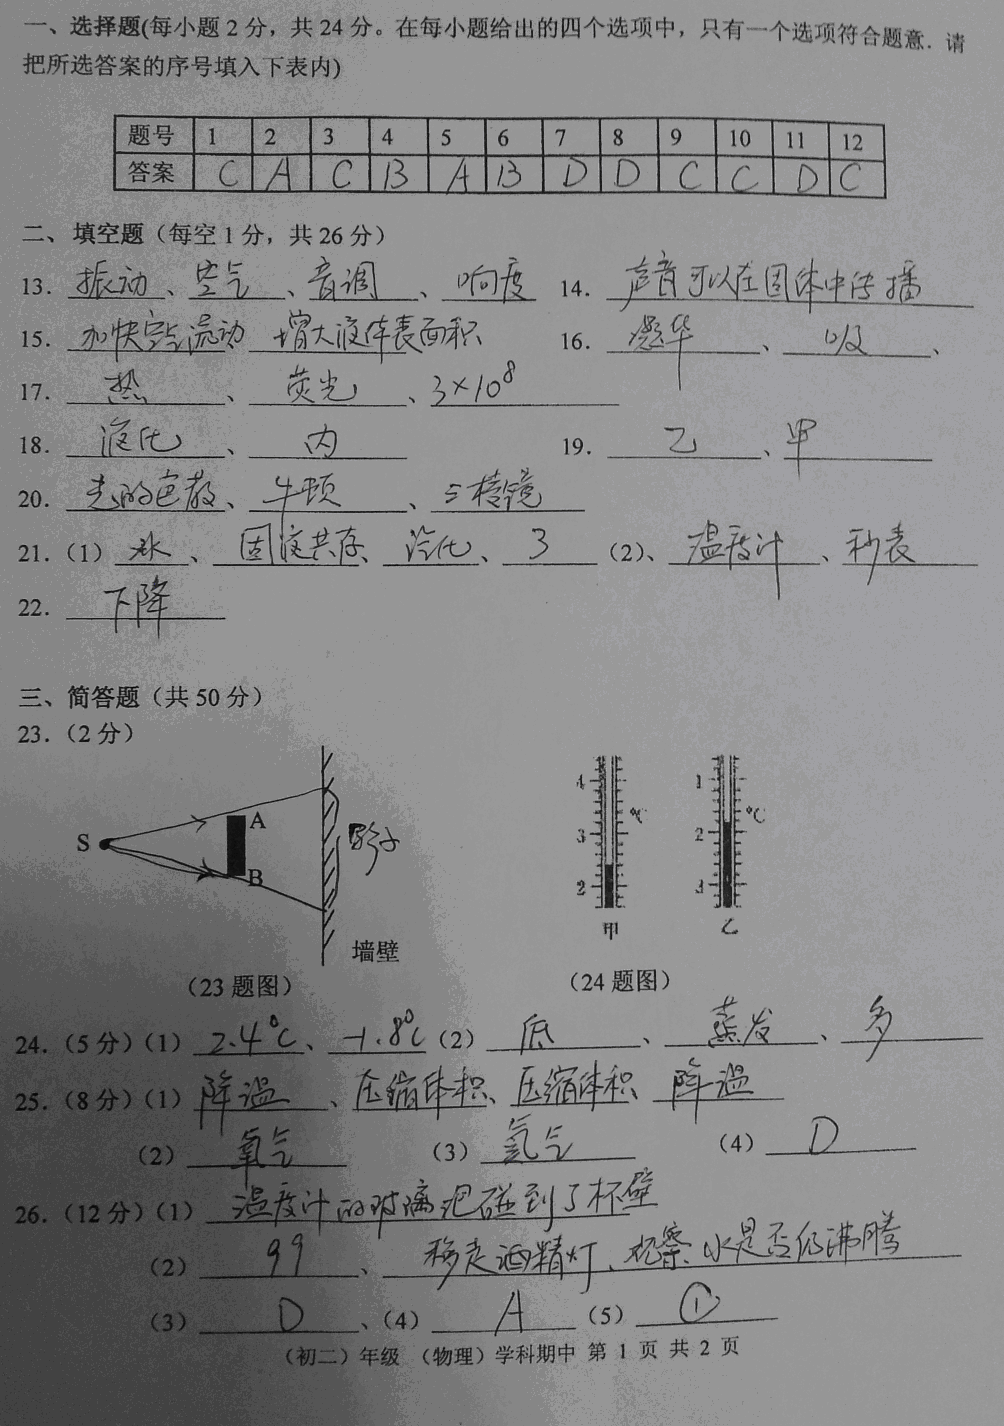 一、选择题(每小题 2 分，共 24 分。在每小题给出的四个选项中，只有一个选项符合题意．请
把所选答案的序号填入下表内)
题号 1 2 3 4 5 6 7 8 9 10 11 12
答案 C A C B A B D D C C D C
二、填空题（每空 1 分，共 26 分）
13．振动、空气、音调、响度 14．声音可以在固体中传播
15．加快空气流动 增大液体表面积 16．凝华、吸、
17．热、荧光、3×10⁸
18．液化、内 19．乙、甲
20．光的色散、牛顿、三棱镜
21．（1）冰、固液共存、汽化、3 （2）、温度计、秒表
22．下降
三、简答题（共 50 分）
23．（2 分）
S A B 影子 墙壁
4 3 2 ℃ 甲
1 2 3 ℃ 乙
（23 题图） （24 题图）
24．（5 分）（1）2.4℃、-1.8℃（2）低、蒸发、多
25．（8 分）（1）降温、压缩体积、压缩体积、降温
（2）氧气 （3）氦气 （4）D
26．（12 分）（1）温度计的玻璃泡碰到了杯壁
（2）99、移走酒精灯、观察水是否仍沸腾
（3）D、（4）A （5）①
（初二）年级 （物理）学科期中 第 1 页 共 2 页